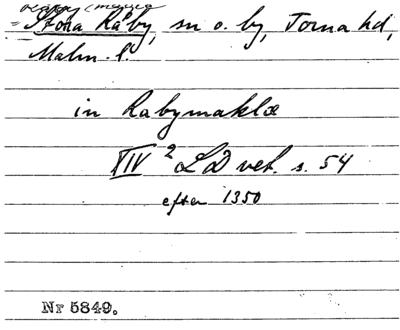 = Stora Råby, sn o. by, Torna hd,
Malm. l.
in Rabymaklæ
XIV 2 LD vet. s. 54
efter 1350
Nr 5849.